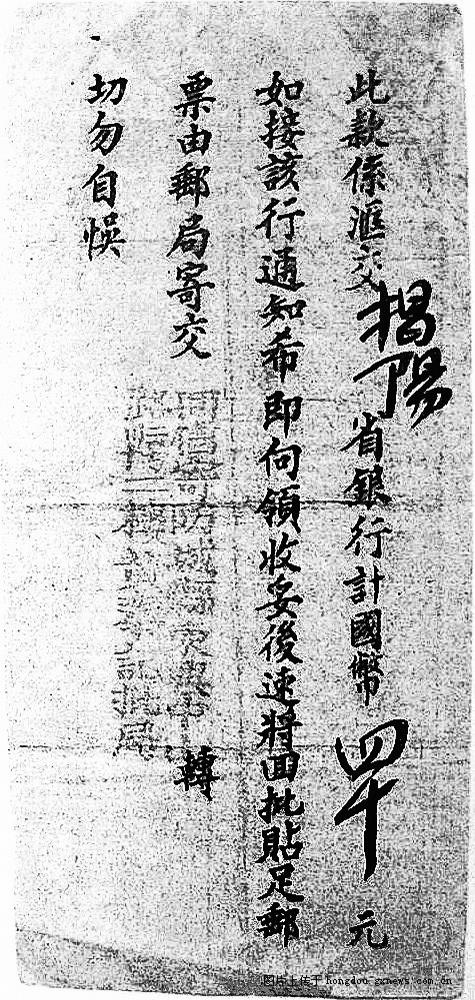 此款係滙交揭陽省銀行計國幣四十元
如接該行通知希即向領收妥後速將回批貼足郵
票由郵局寄交
回信寄防城 東興
轉
批局
切勿自悞
图片上传于 hongdou.gxnews.com.cn